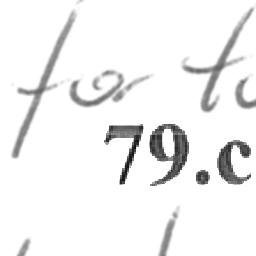 for to
79.c